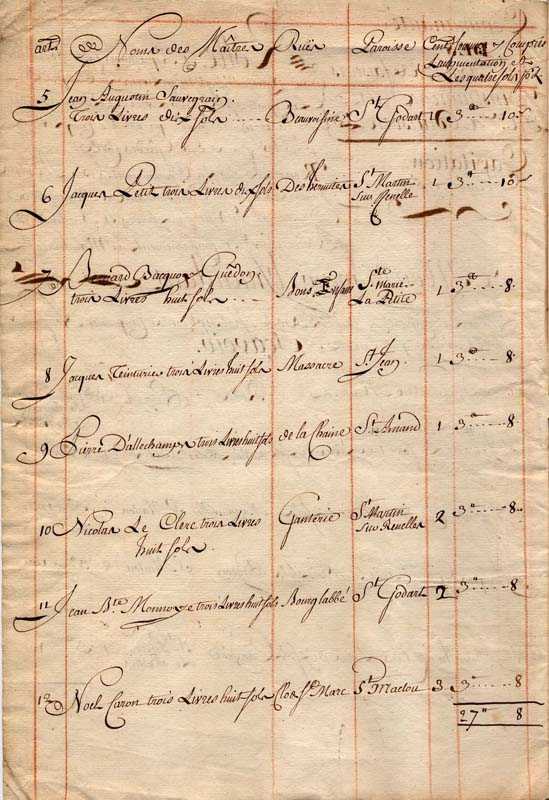 art. Noms des Maîtres Ruës Paroisse Compris
L'augmentation et
Les quatre sols p. £
5 Jean Augustin Sauvegrain.
trois Livres dix sols Beauvoisine St Godart 1 3" 10s
6 Jacques Petit trois Livres dix sols Des hermites St Martin 1 3" 10s
Sur Renelle
7 Bernard Bacquor Guêdon Bons Enfans Ste Marie 1 3" 8.
trois Livres huit sols La Petite
8 Jacques Teinturier trois Livres huit sols Massacre St Jean. 1 3" 8.
9 Pierre Dallechamps trois Livres huit sols de la Chaine St Amand 1 3" 8.
10 Nicolas Le Clerc trois Livres Ganterie St Martin 2 3" 8.
huit sols. Sur Renelles
11 Jean Bte trois Livres huit sols Bourg labbé St Godart 2 3" 8
12 Noel Caron trois Livres huit sols Clos St Marc St Maclou 3 3" 8
27" 8